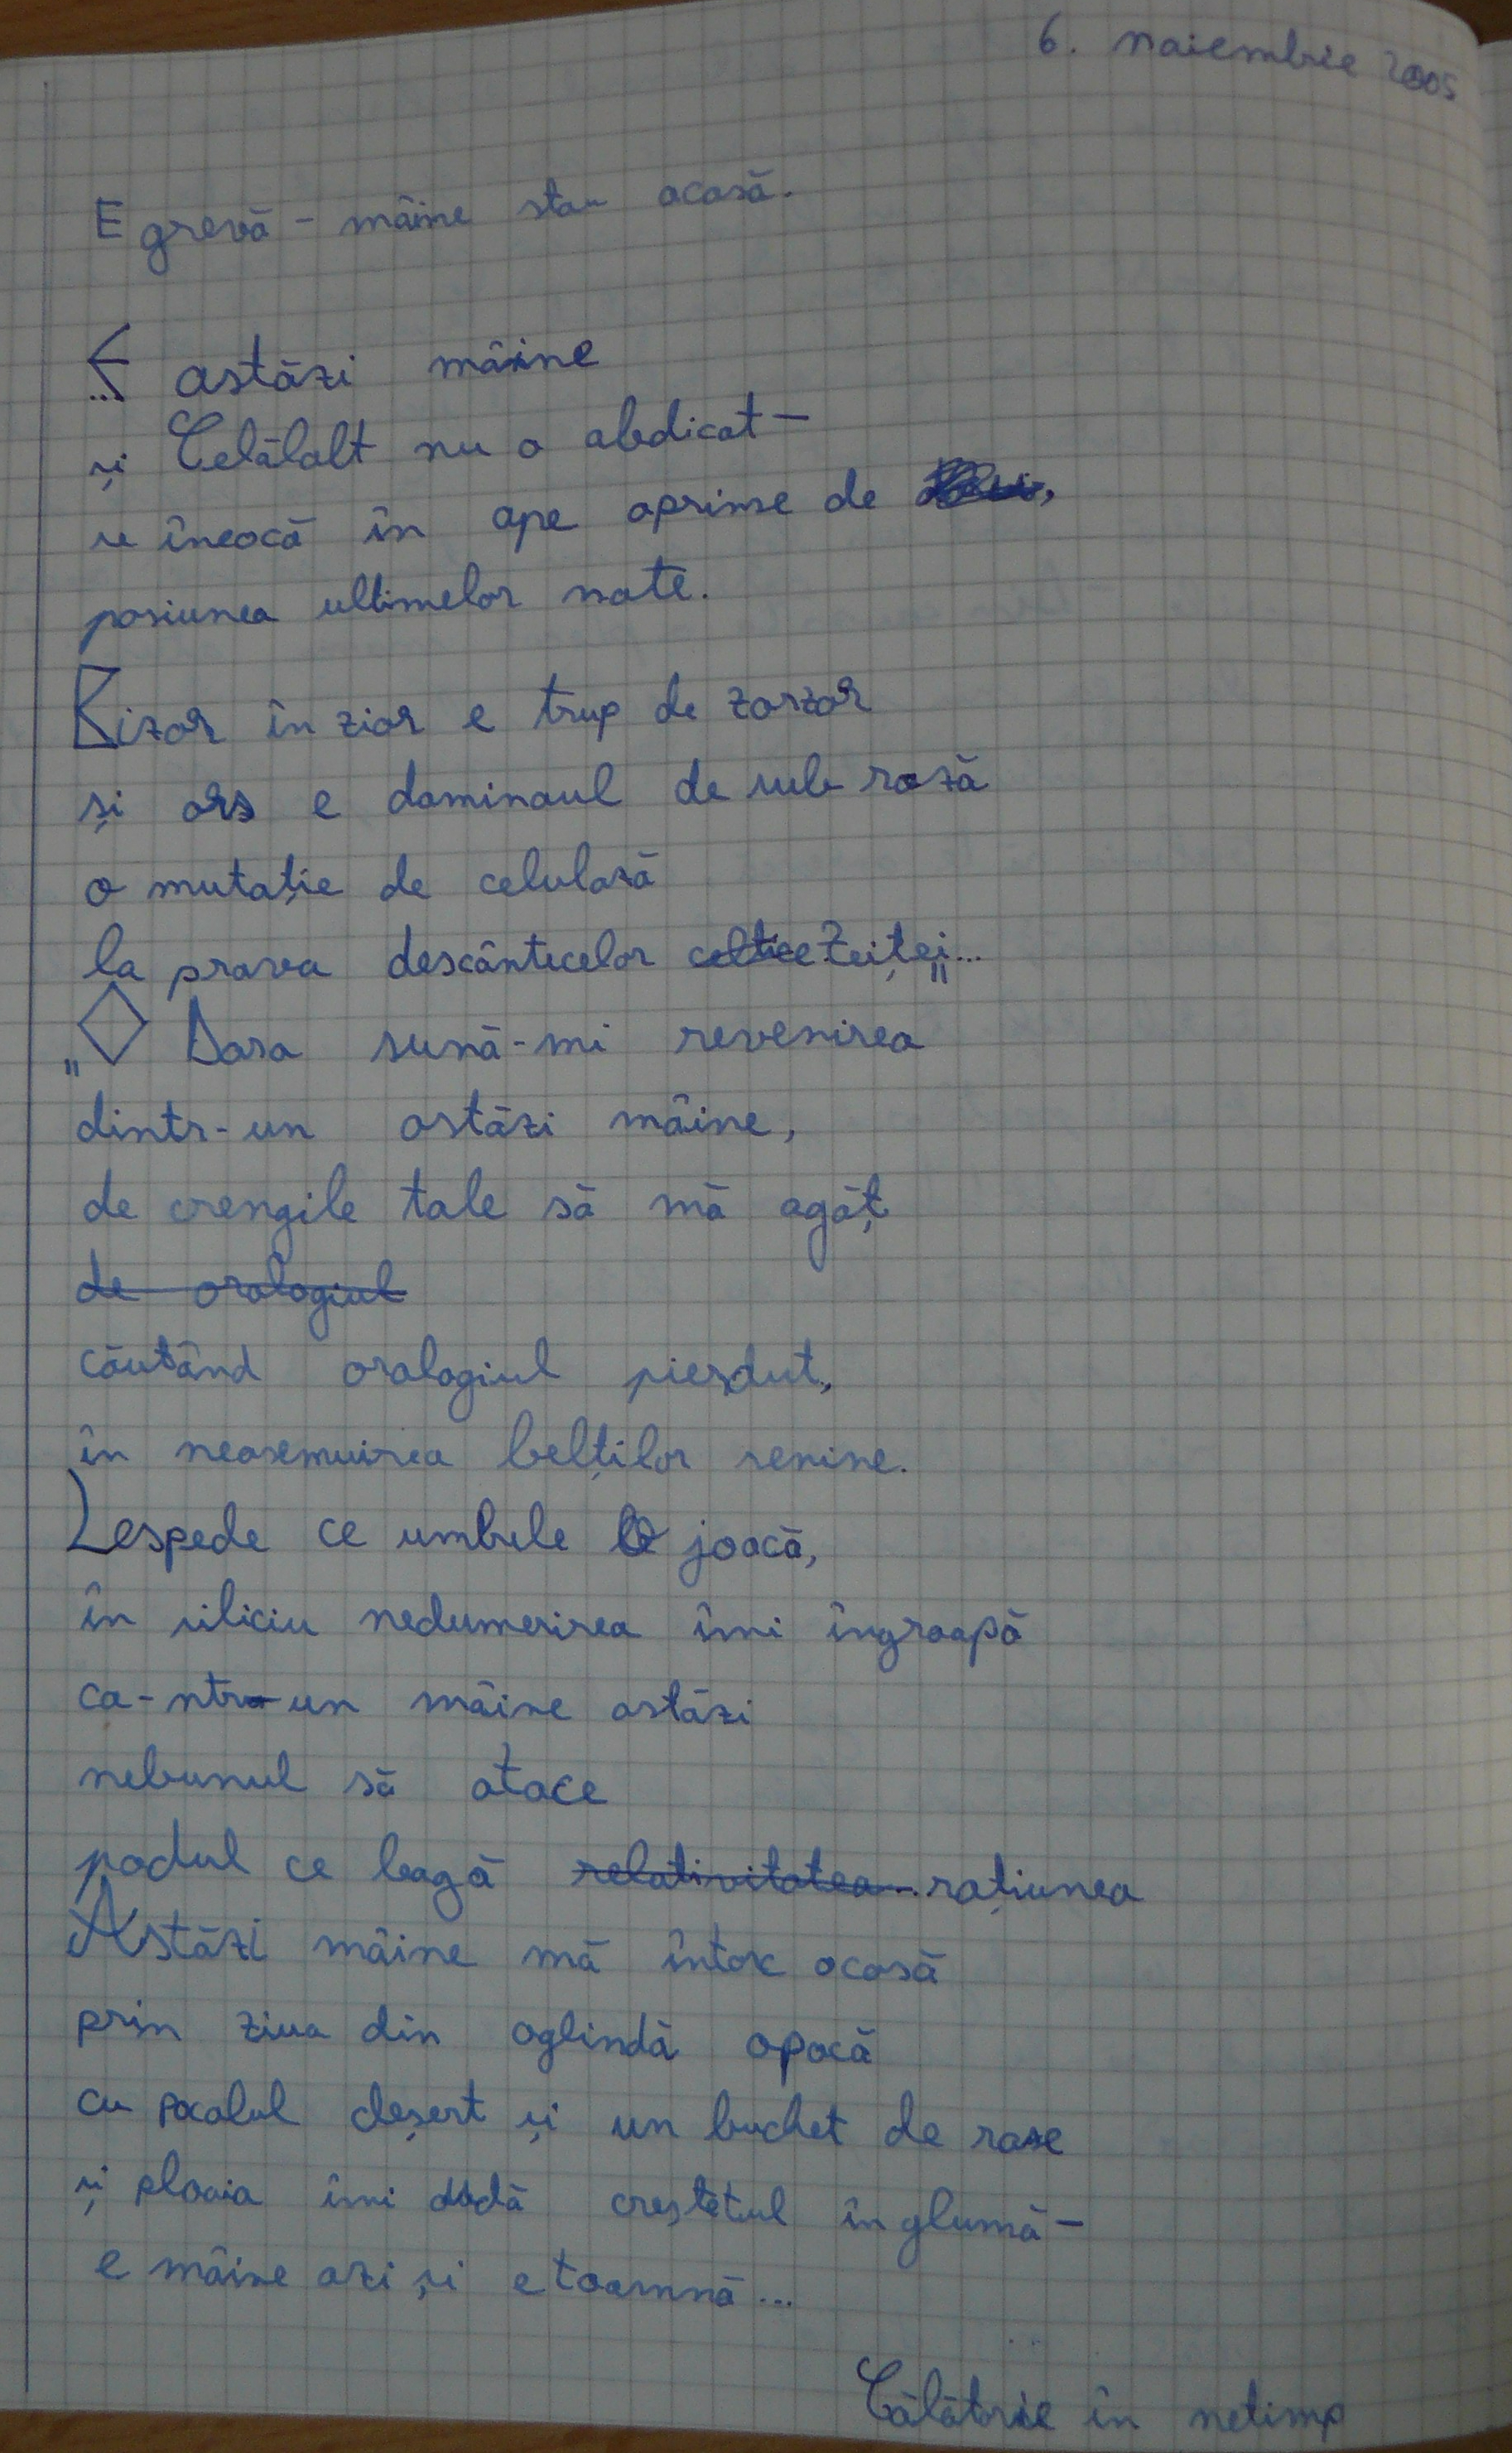 6. noiembrie 2005
E grevă - mâine stau acasă.
E astăzi mâine
și Celălalt nu a abdicat -
se îneacă în ape aprinse de
pasiunea ultimelor note.
Bizar în ziar e trup de zarzăr
și ars e dominoul de sub rază
o mutație de celulază
la prova descântecelor celtice Zeiței...
„ Dora sună-mi revenirea
dintr-un astăzi mâine,
de crengile tale să mă agăț
de orologiul
căutând orologiul pierdut,
în neasemuirea belților senine.
Lespede ce umbrele le joacă,
în siliciu nedumerirea îmi îngroapă
ca-ntr-un mâine astăzi
nebunul să atace
podul ce leagă relativitatea... rațiunea
Astăzi mâine mă întorc acasă
prin ziua din oglindă opacă
cu pocalul deșert și un buchet de roze
și ploaia îmi udă creștetul în glumă -
e mâine azi și e toamnă...
Călătorie în netimp